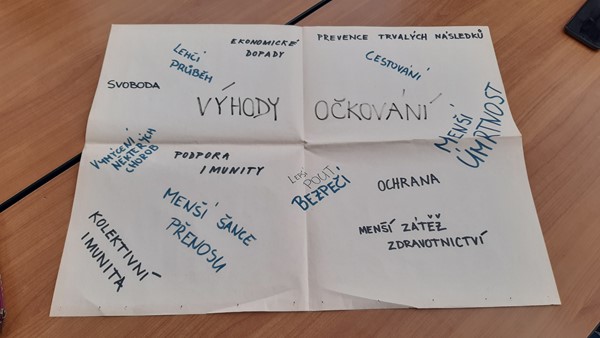 EKONOMICKÉ
DOPADY
PREVENCE TRVALÝCH NÁSLEDKŮ
LEHČÍ
PRŮBĚH
CESTOVÁNÍ
SVOBODA
VÝHODY OČKOVÁNÍ
MENŠÍ
ÚMRTNOST
VYMÝCENÍ
NĚKTERÝCH
CHOROB
PODPORA
IMUNITY
POCIT
BEZPEČÍ
OCHRANA
MENŠÍ ŠANCE
PŘENOSU
KOLEKTIVNÍ
IMUNITA
MENŠÍ ZÁTĚŽ
ZDRAVOTNICTVÍ